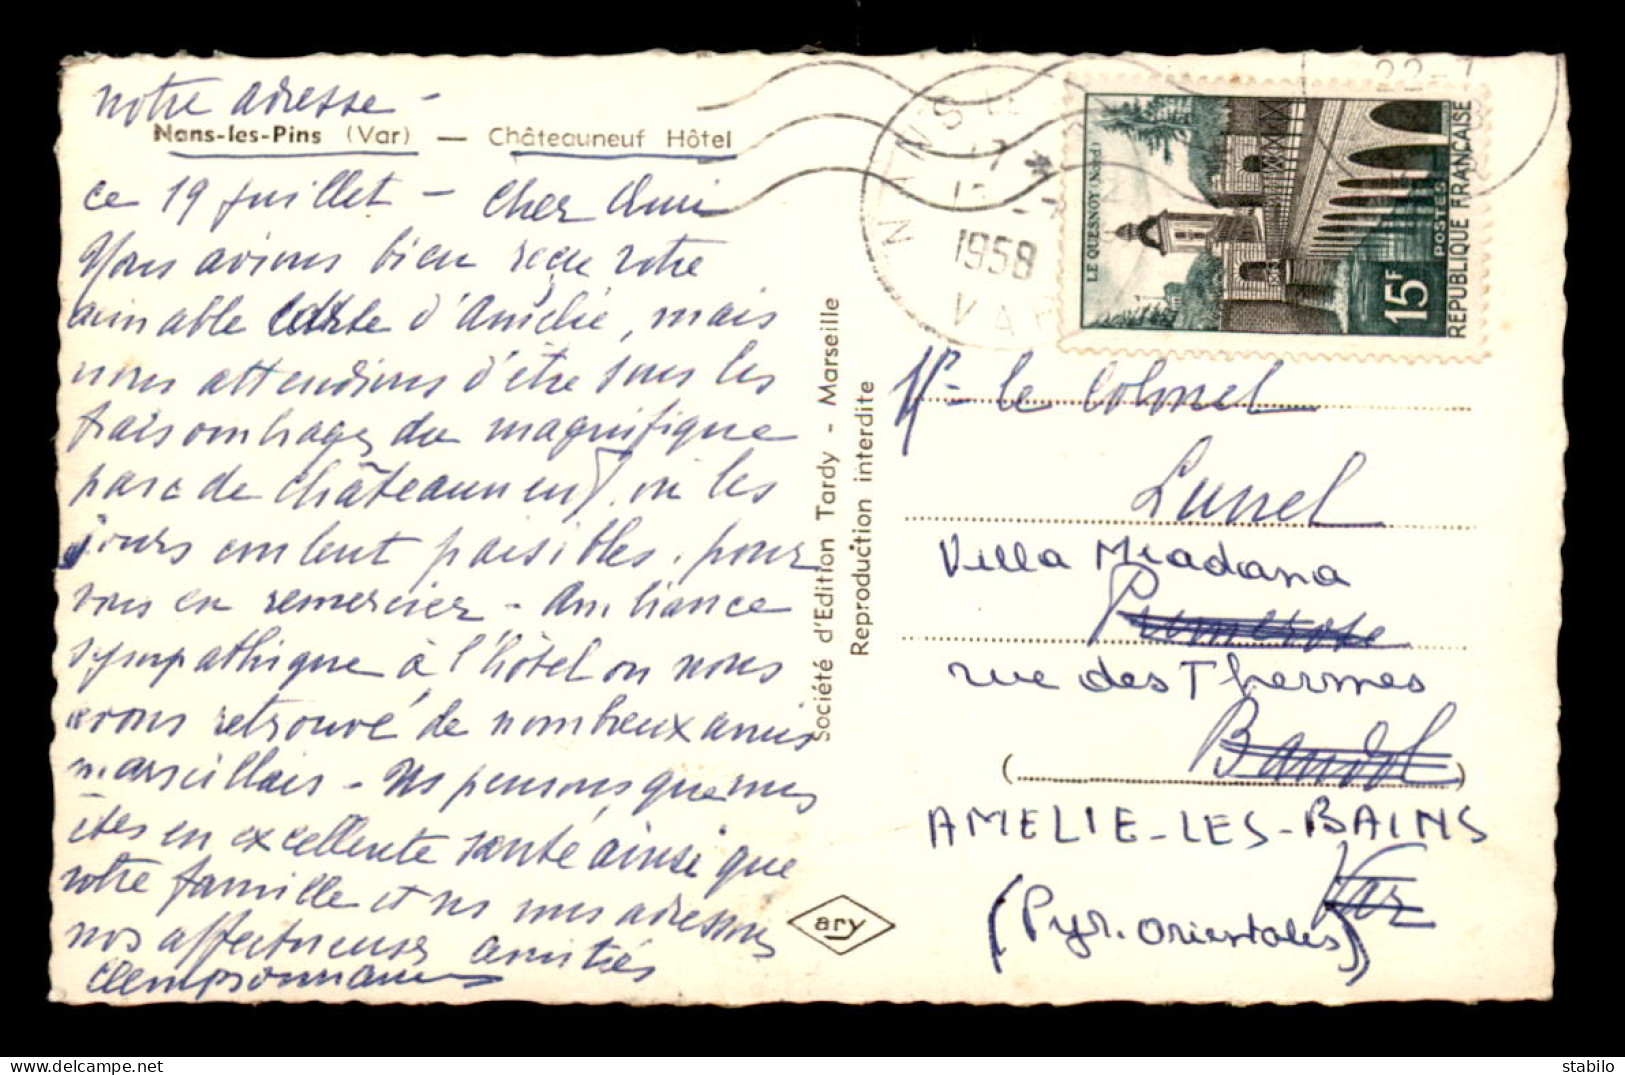 notre adresse -
Nans-les-Pins (Var) — Châteauneuf Hôtel
ce 19 juillet - Cher Ami
Nous avions bien reçu votre
aimable carte d'Amélie, mais
nous attendions d'être sous les
frais ombrages du magnifique
parc de Châteauneuf, où les
jours coulent paisibles, pour
vous en remercier - Ambiance
sympathique à l'hôtel où nous
avons retrouvé de nombreux amis
marseillais - Ns pensons que vous
êtes en excellente santé ainsi que
votre famille et ns vous adressons
nos affectueuses amitiés
Société d'Edition Tardy - Marseille
Reproduction interdite
ary
NANS-LE
17 *
1958
VAR
22-7
LE QUESNOY (Nord)
15F
POSTES
REPUBLIQUE FRANÇAISE
Mr le Colonel
Lunel
Villa Miadana
Primerose
rue des Thermes
Bandol
AMELIE-LES-BAINS
Var
(Pyr. Orientales)
stabilo